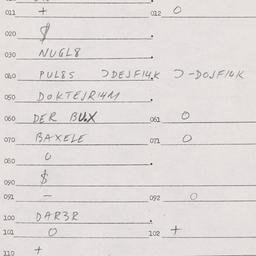 011 + 012 O
020 $
030 NUGL8
040 PUL8S
050
060 DER BUX 061 O
070 BAXELE 071 O
080 O
090 $
091 – 092 O
100 DAR3R
101 O 102 +
110 +